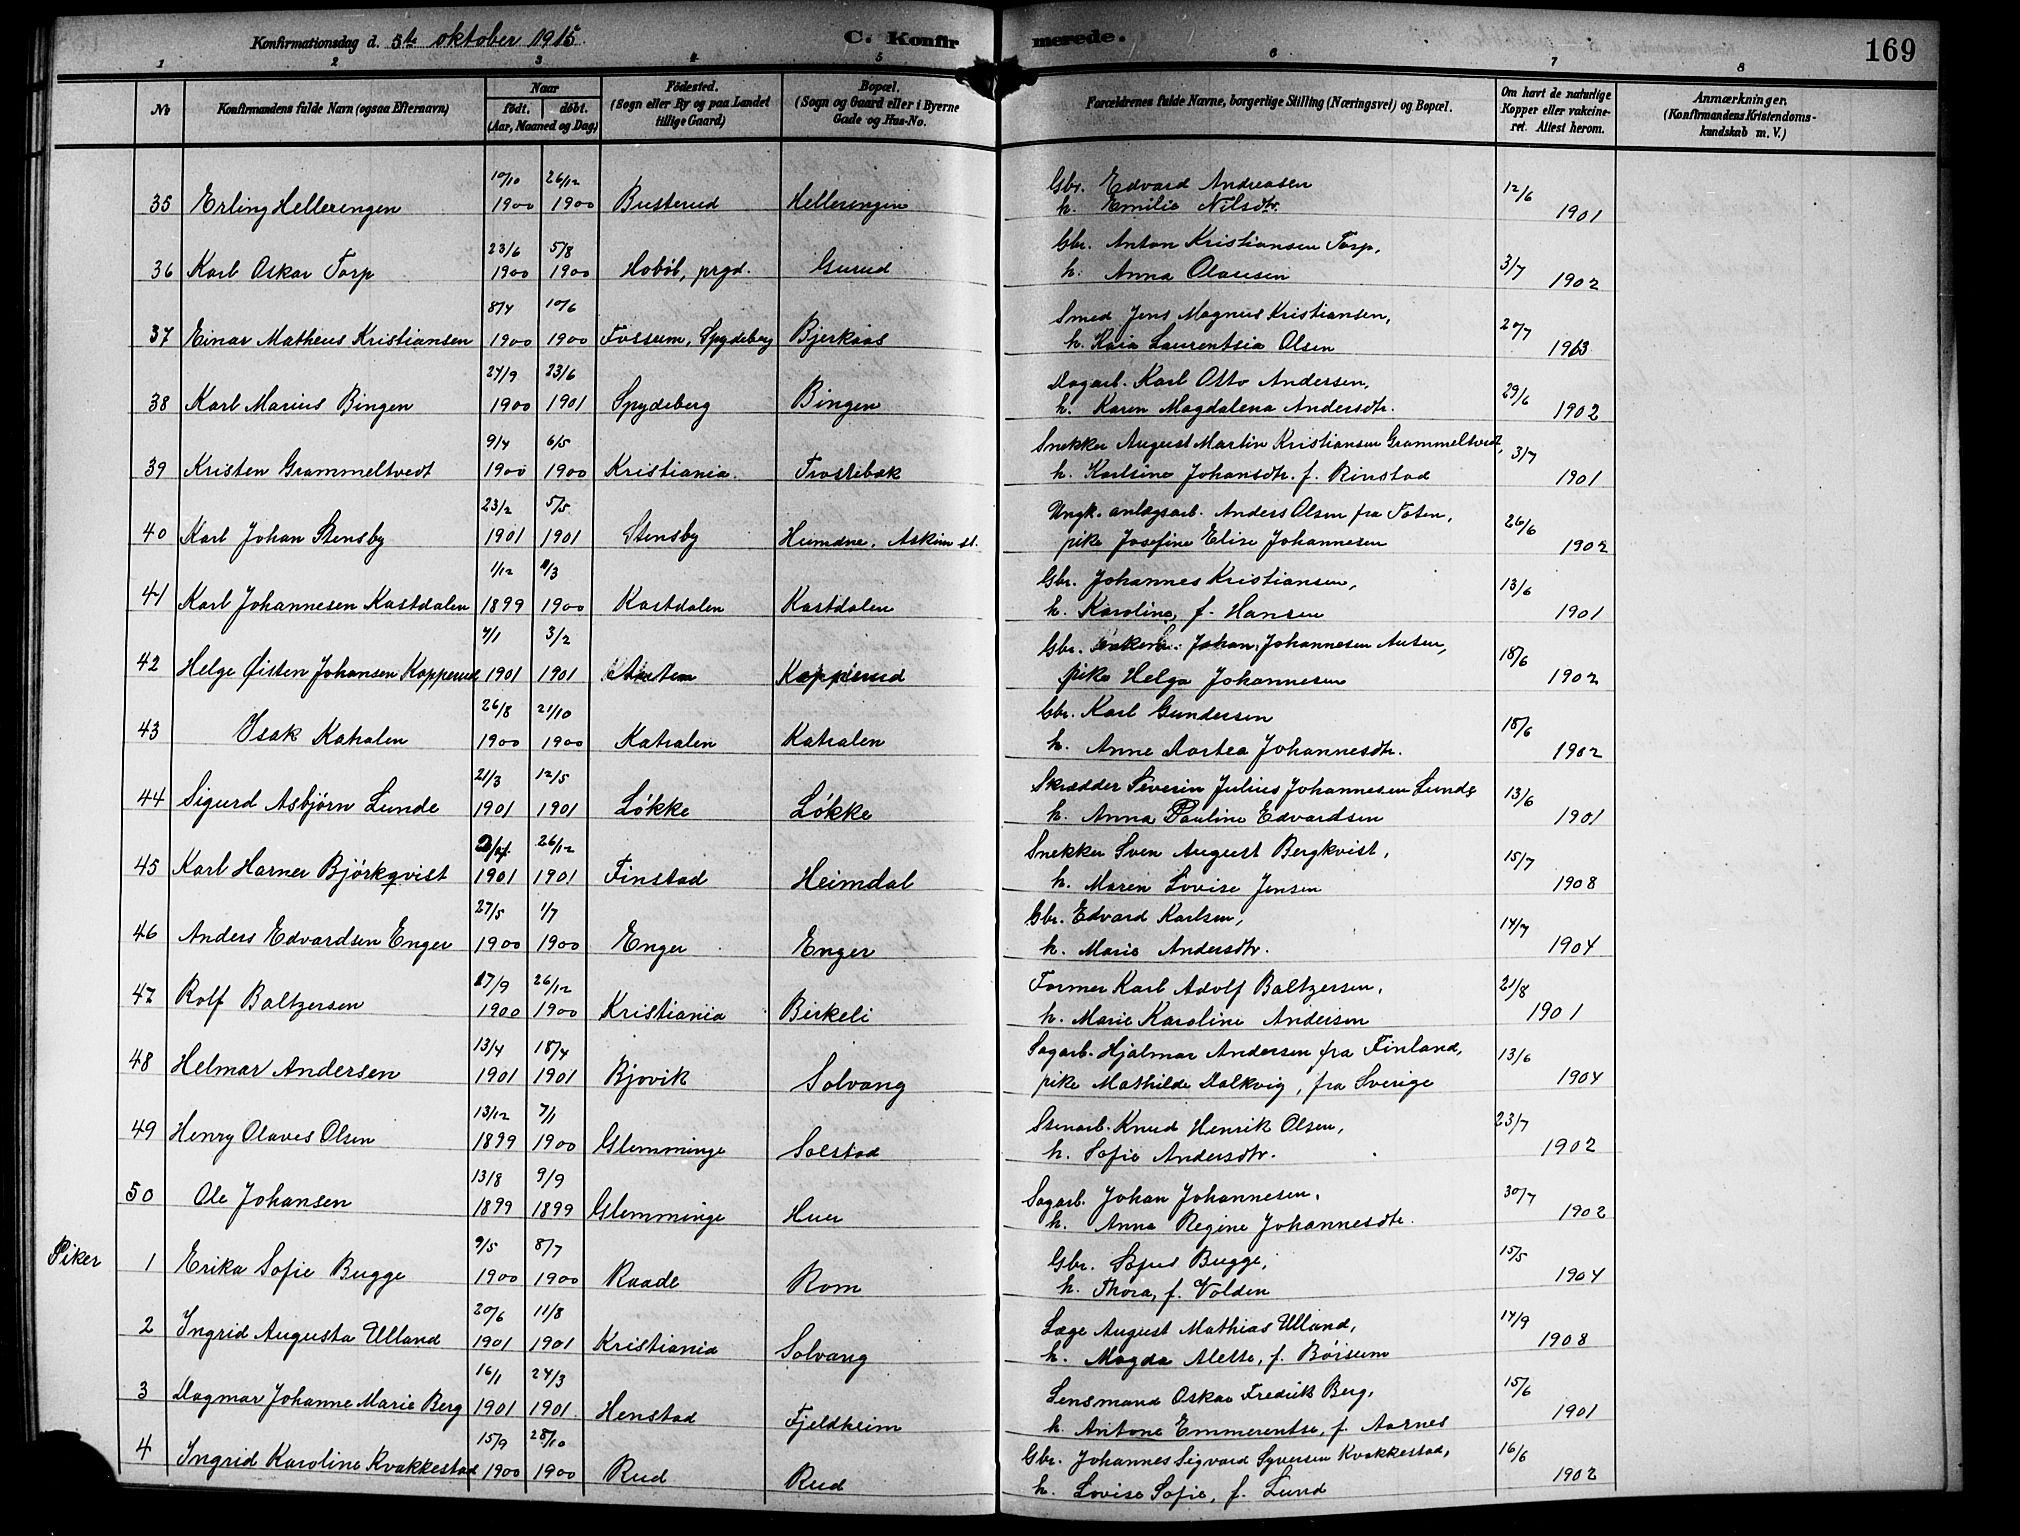 Konfirmationsdag d. 5te oktober 1915. C. Konfirmerede. 169
1 2 3 4 5 6 7 8
No Konfirmandens fulde Navn (ogsaa Efternavn) Naar født. døbt. (Aar, Maaned og Dag) Fødested. (Sogn eller By og paa Landet tillige Gaard) Bopæl. (Sogn og Gaard eller i Byerne Gade og Hus-No. Forældrenes fulde Navne, borgerlige Stilling (Næringsvei) og Bopæl. Om havt de naturlige Kopper eller vakcineret. Attest herom. Anmærkninger. (Konfirmandens Kristendomskundskab m. V.)
10/10 26/12 Gbr. Edvard Andreasen 12/6
35 Erling Hellerengen 1900 1900 Busterud Hellerengen h. Emilie Nilsdtr. 1901
23/6 5/8 Gbr. Anton Kristiansen Torp,
36 Karl Oskar Torp 1900 1900 Hobøl, prgd. Gurud h. Anna Olausen 3/7 1902
8/4 10/6 Smed Jens Magnus Kristiansen,
37 Einar Matheus Kristiansen 1900 1900 Fossum, Spydeberg Bjerkaas h. Kaia Laurentsia Olsen 20/7 1913
24/9 23/6 Dagarb. Karl Otto Andersen,
38 Karl Marius Bingen 1900 1901 Spydeberg Bingen h. Karen Magdalena Andersdtr. 29/6 1902
9/4 6/5 Snekker August Martin Kristiansen Grammeltvedt,
39 Kristen Grammeltvedt 1900 1900 Kristiania. Trostebak h. Karlsine Johansdtr. f. Rinstad 3/7 1901
23/2 5/5 Ungk. anlægsarb. Anders Olsen fra Toten,
40 Karl Johan Stensby 1901 1901 Stensby Humdne, Askim st. pike Josefine Elise Johannesen 26/6 1902
1/12 11/3 Gbr. Johannes Kristiansen,
41 Karl Johannesen Kastdalen 1899 1900 Kastdalen Kastdalen h. Karoline, f. Hansen 13/6 1901
7/1 3/2 Gbr. Johan Johannesen Ausen,
42 Helge Øisten Johansen Kopperud 1901 1901 Kopperud pike Helga Johannesen 18/6 1902
26/8 21/10 Gbr. Karl Gundersen
43 Isak Katralen 1900 1900 Katralen Katralen h. Anne Dortea Johannesdtr. 18/6 1902
21/3 12/5 Skrædder Severin Julius Johannesen Lunde
44 Sigurd Asbjørn Lunde 1901 1901 Løkke Løkke h. Anna Pauline Edvardsen 13/6 1901
26/12 Snekker Sven August Bergkvist,
45 Karl Harner Bjørkqvist 1901 1901 Finstad Heimdal h. Maren Lovise Jensen 15/7 1908
27/5 1/7 Gbr. Edvard Karlsen,
46 Anders Edvardsen Enger 1900 1900 Enger Enger h. Marie Andersdtr. 14/7 1904
17/9 26/12 Former Karl Adolf Baltzersen,
47 Rolf Baltzersen 1900 1900 Kristiania Birkeli h. Marie Karoline Andersen 21/8 1901
13/4 18/4 Sagarb. Hjalmar Andersen fra Finland,
48 Helmar Andersen 1901 1901 Bjovik Solvang pike Mathilde Dalkvig, fra Sverige 13/6 1904
13/12 7/1 Stenarb. Knud Henrik Olsen,
49 Henry Olaves Olsen 1899 1900 Glemminge Solstad h. Sofie Andersdtr. 23/7 1902
13/8 9/9 Sagarb. Johan Johannesen,
50 Ole Johansen 1899 1899 Glemminge Huer h. Anna Regine Johannesdtr. 30/7 1902
Piker 9/5 8/7 Gbr. Sofus Bugge,
1 Erika Sofie Bugge 1900 1900 Raade Rom h. Thora, f. Volden 15/5 1904
20/6 11/8 Læge August Mathias Ulland,
2 Ingrid Augusta Ulland 1901 1901 Kristiania Solvang h. Magda Alette, f. Børsum 14/9 1908
16/1 24/3 Lensmand Oskar Fredrik Berg,
3 Dagmar Johanne Marie Berg 1901 1901. Henstad Fjeldheim h. Antone Emmerentse, f. Aarnes 15/6 1901
15/9 28/10 Gbr. Johannes Sigvard Syversen Kvakkestad,
4 Ingrid Karoline Kvakkestad 1900 1900 Rud Rud h. Lovise Sofie, f. Lund 16/6 1902